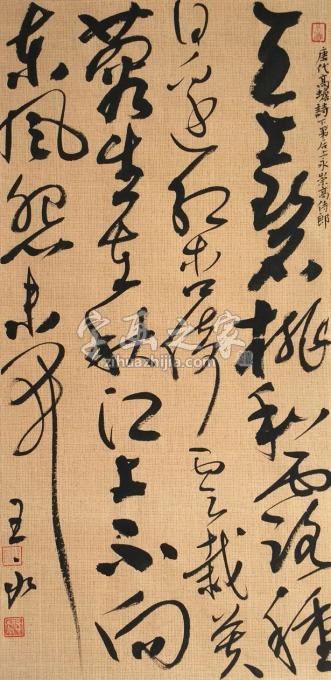 唐代高蟾詩下第后上永崇高侍郎
天上碧桃和露種
日邊紅杏倚雲栽芙
蓉生在秋江上不向
東風怨未開
王
字画之家
zihuazhijia.com